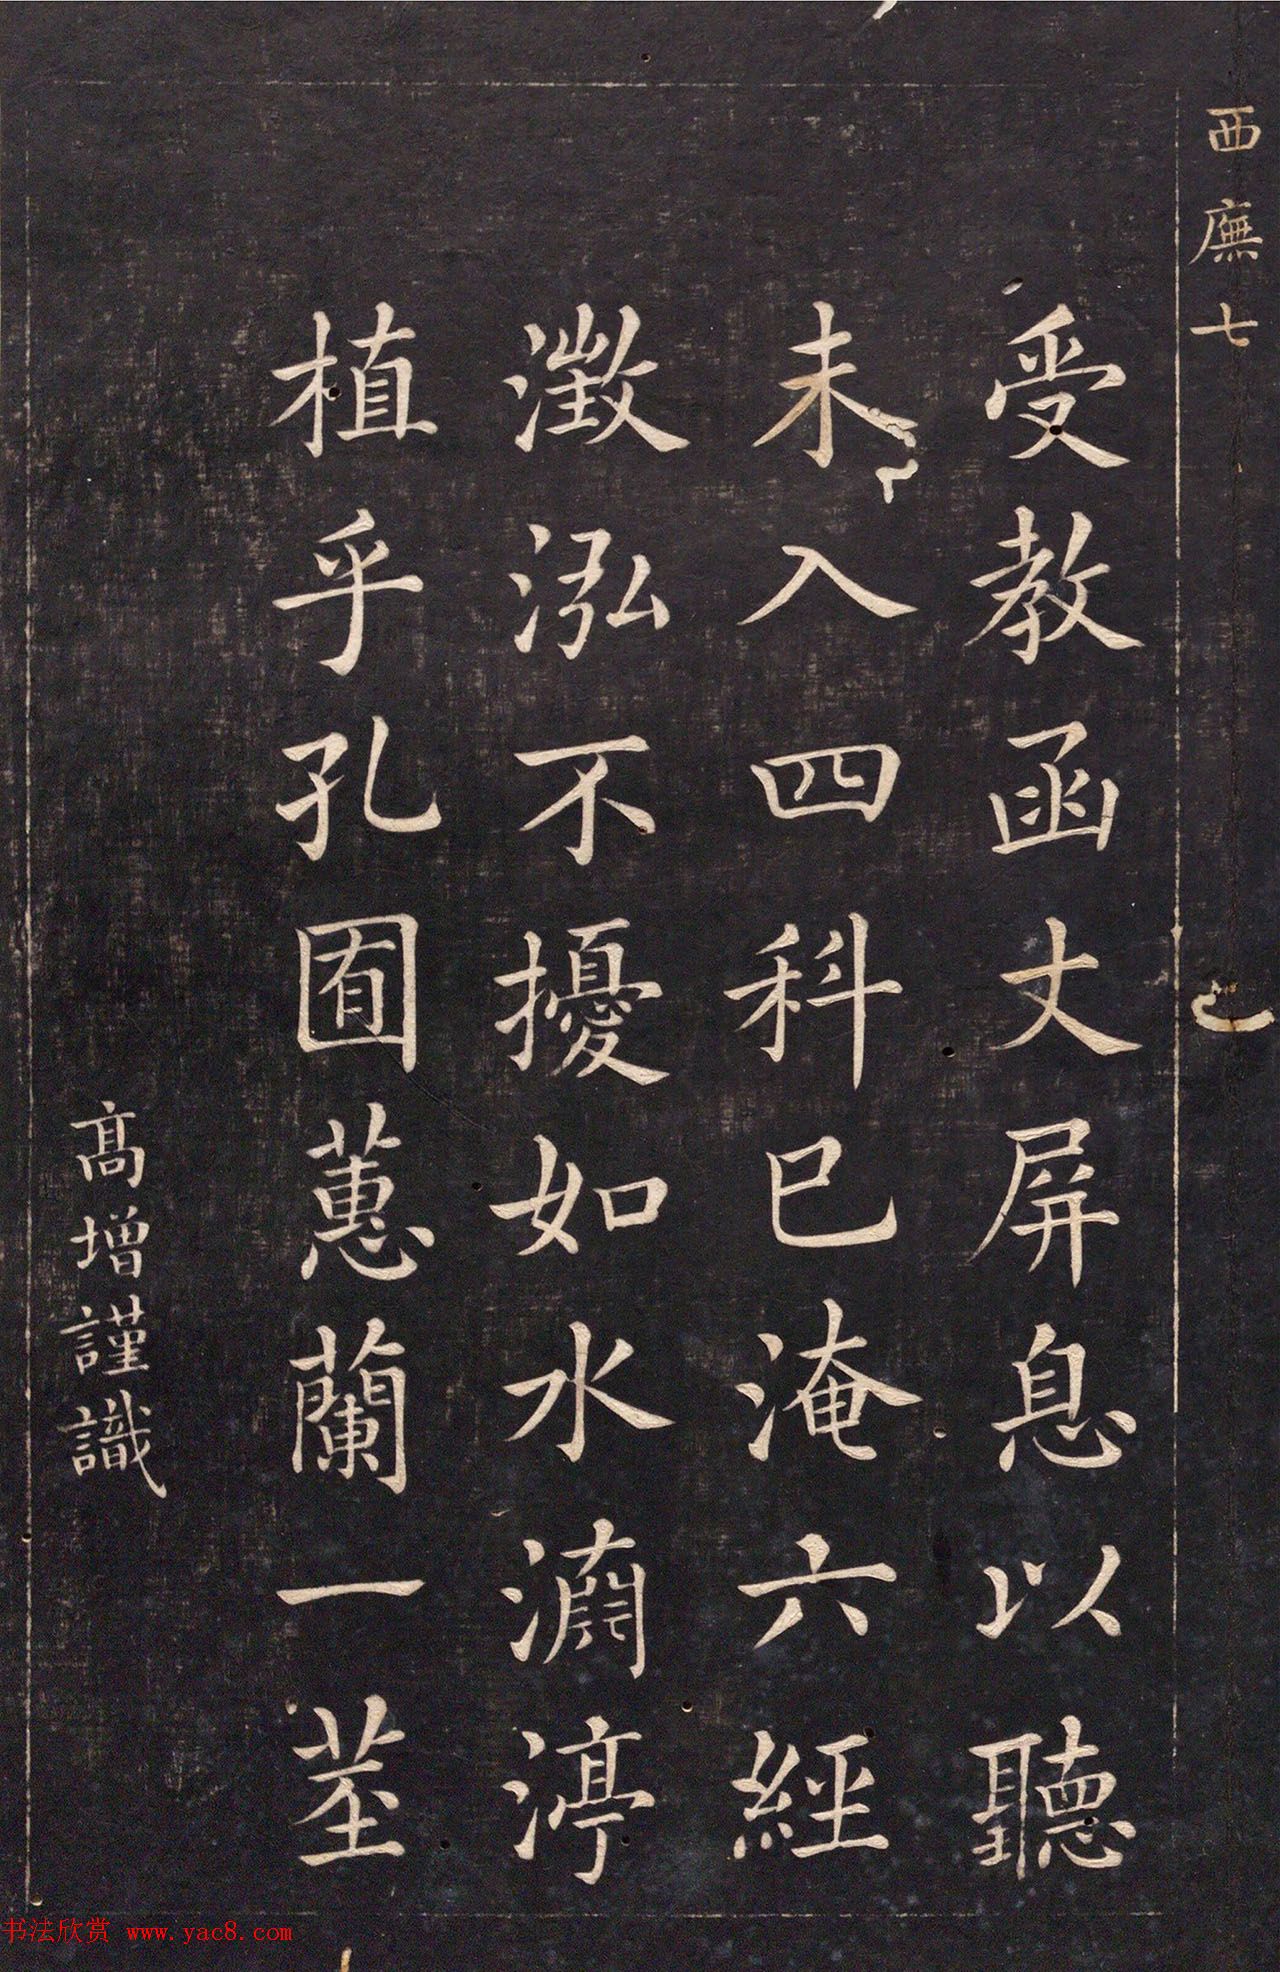 西廡七
受教函丈屏息以聽
未入四科已淹六經
澂泓不擾如水淵渟
植乎孔囿蕙蘭一莖
高增謹識
书法欣赏 www.yac8.com